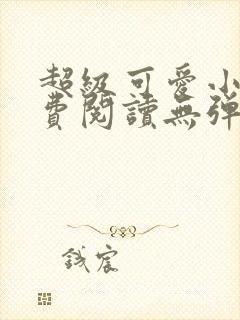 超級可愛小
費閱讀無彈
鋮宸